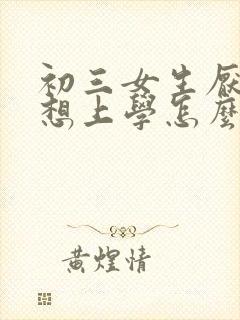 初三女生厌
想上學怎麼
黄煌情